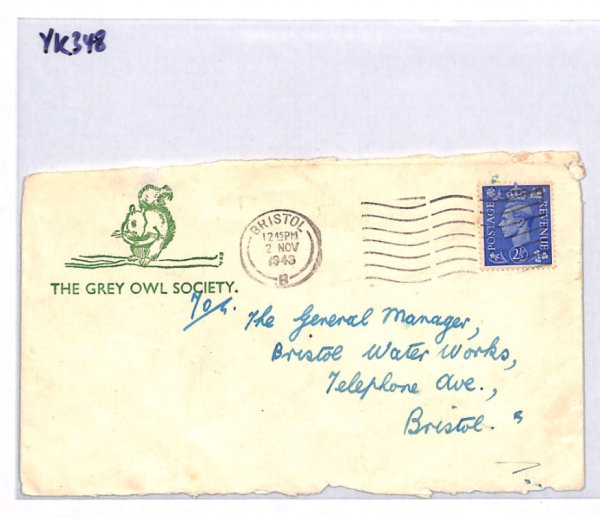 YK348
BRISTOL
12 45 PM
2 NOV
1943
B
POSTAGE
REVENUE
2½
THE GREY OWL SOCIETY.
To:
The General Manager,
Bristol Water Works,
Telephone Ave.,
Bristol.